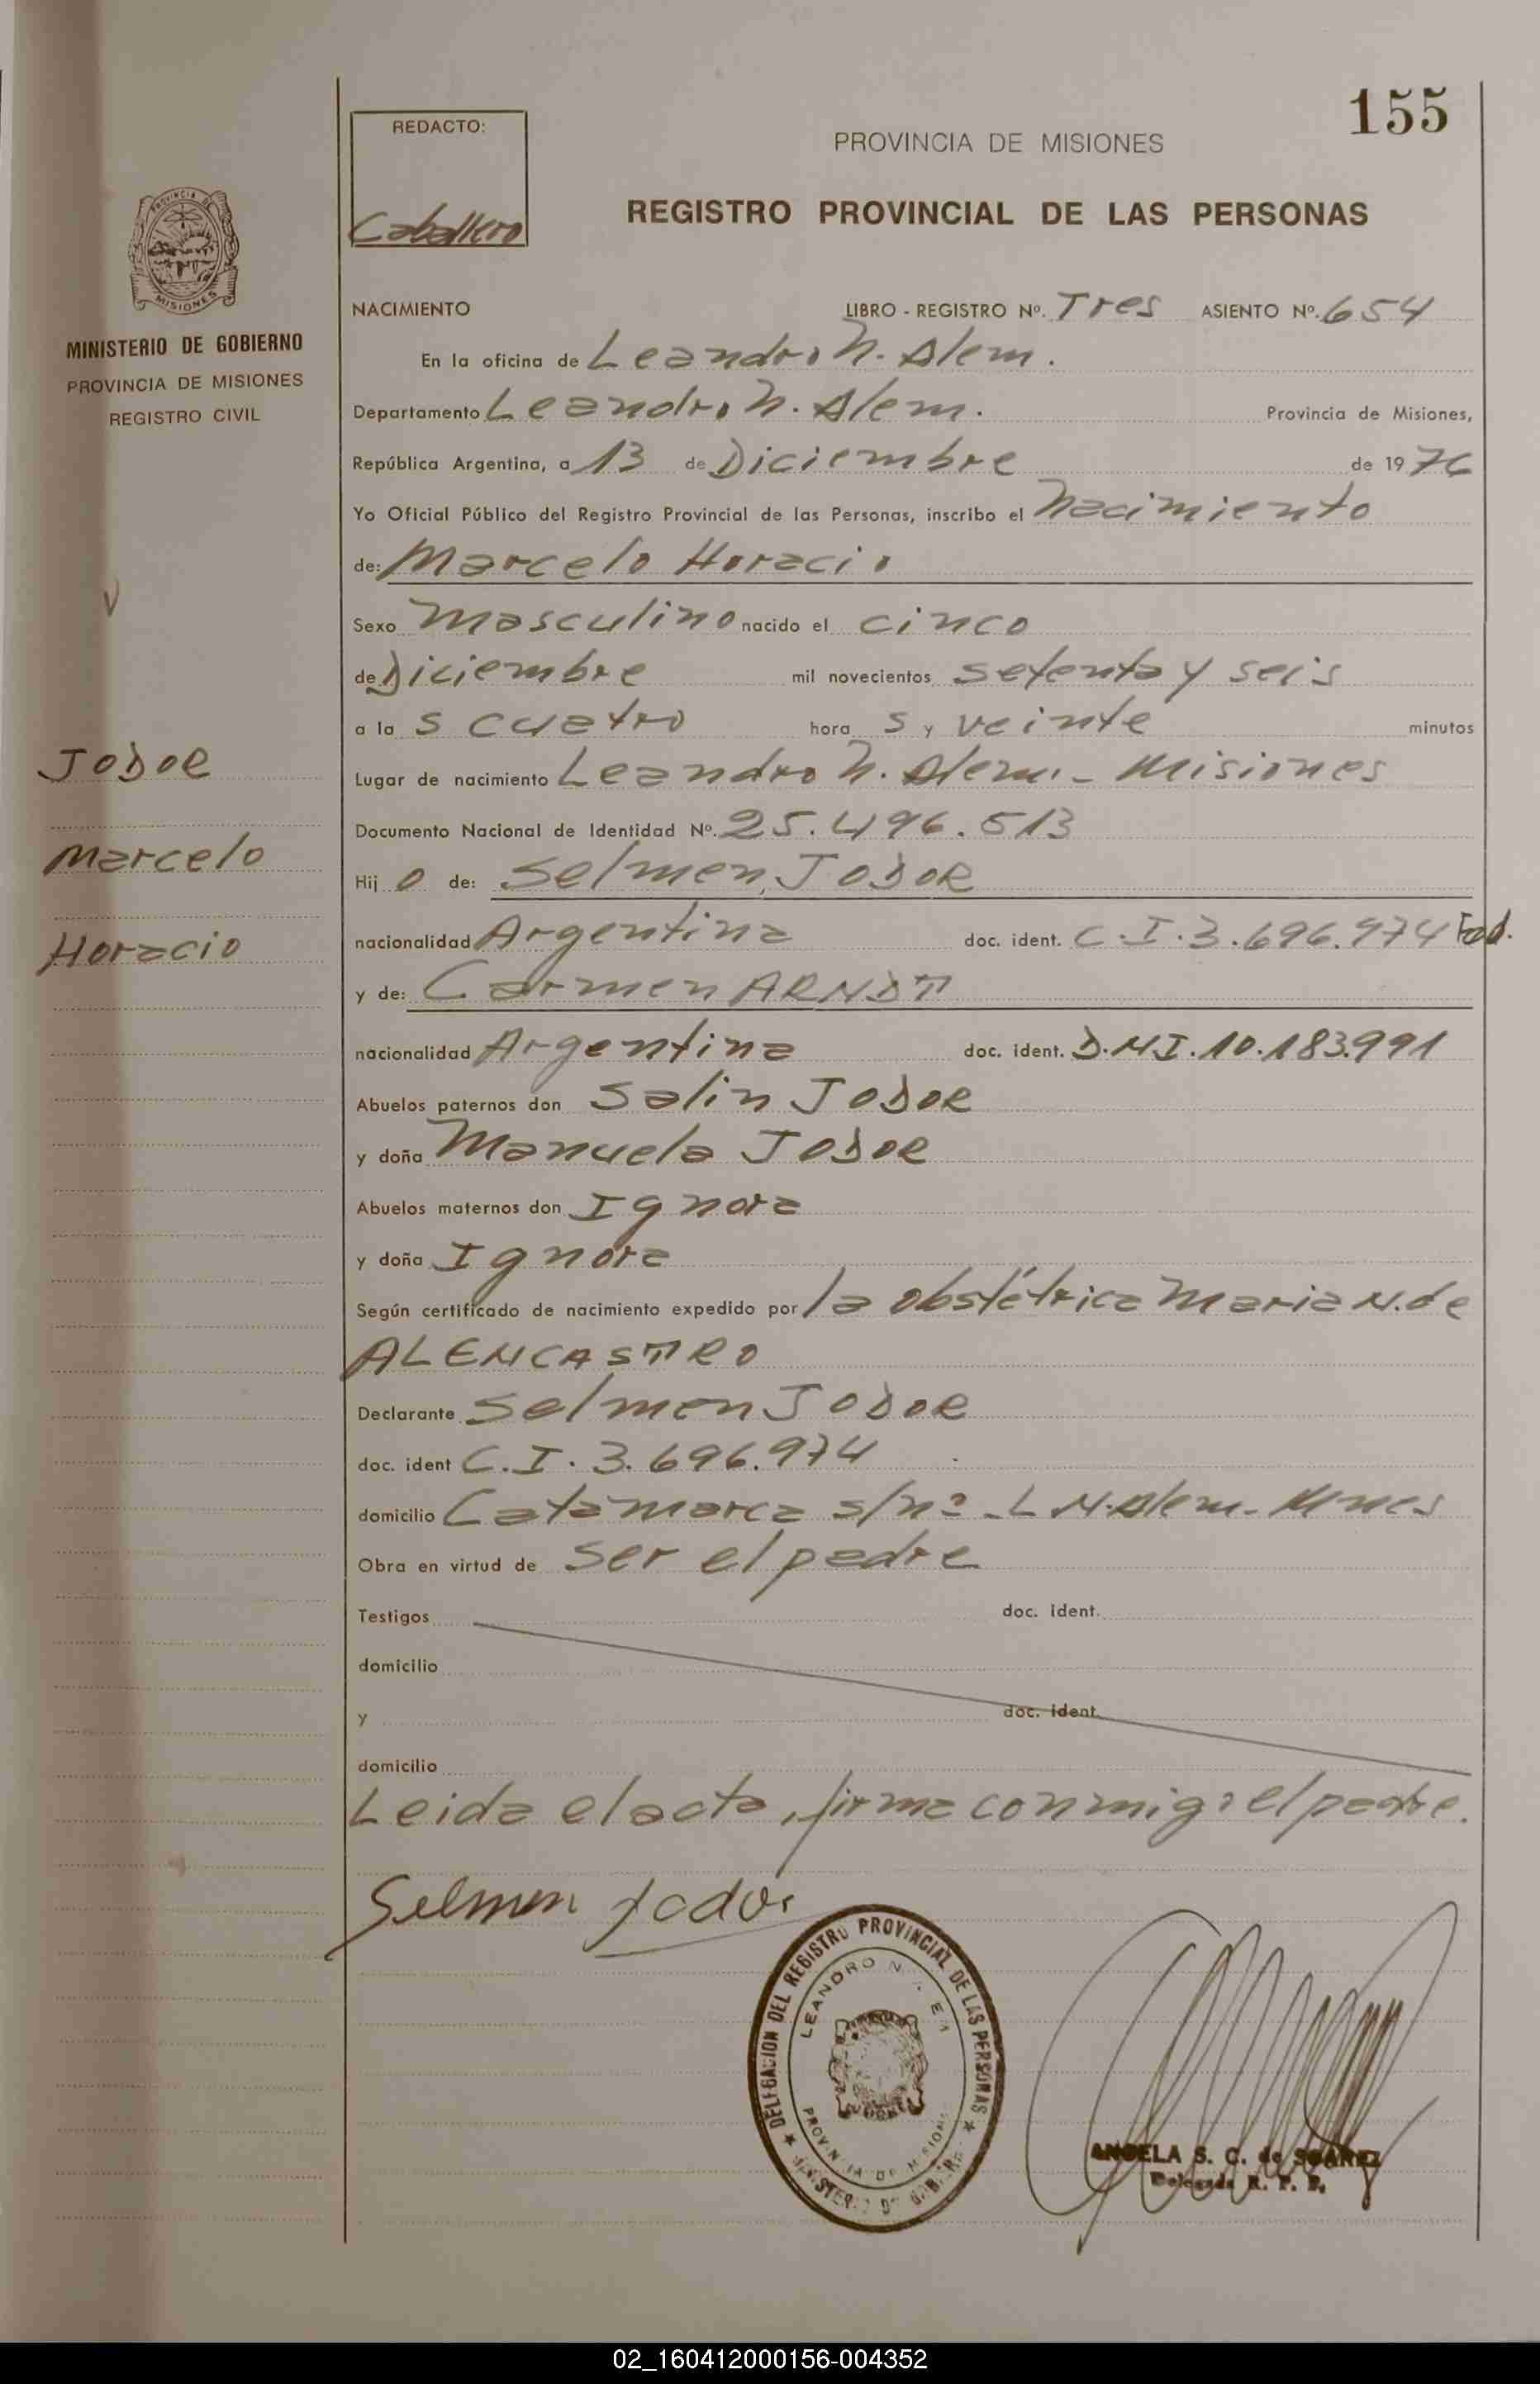 155
REDACTO:
Caballero
PROVINCIA DE MISIONES
REGISTRO PROVINCIAL DE LAS PERSONAS
PROVINCIA DE
MISIONES
MINISTERIO DE GOBIERNO
PROVINCIA DE MISIONES
REGISTRO CIVIL
NACIMIENTO LIBRO - REGISTRO Nº. Tres ASIENTO Nº. 654
En la oficina de Leandro N. Alem.
Departamento Leandro N. Alem. Provincia de Misiones,
República Argentina, a 13 de Diciembre de 1976
Yo Oficial Público del Registro Provincial de las Personas, inscribo el Nacimiento
de: Marcelo Horacio
Sexo Masculino nacido el cinco
de Diciembre mil novecientos setenta y seis
a la s cuatro hora s y veinte minutos
JODOR
Marcelo
Horacio
Lugar de nacimiento Leandro N. Alem - Misiones
Documento Nacional de Identidad Nº. 25.496.513
Hij o de: Selmen JODOR
nacionalidad Argentina doc. ident. C.I. 3.696.974 Fed.
y de: Carmen ARNDT
nacionalidad Argentina doc. ident. D.N.I. 10.183.991
Abuelos paternos don Salin JODOR
y doña Manuela JODOR
Abuelos maternos don Ignora
y doña Ignora
Según certificado de nacimiento expedido por la obstétrica Maria N. de
ALENCASTRO
Declarante Selmen JODOR
doc. ident C.I. 3.696.974
domicilio Catamarca s/nº - L N. Alem - Mnes
Obra en virtud de ser el padre
Testigos doc. ident.
domicilio
y doc. ident.
domicilio
Leida el acta, firma conmigo el padre.
Selmen Jodor
DELEGACION DEL REGISTRO PROVINCIAL DE LAS PERSONAS
LEANDRO N. EM
PROVINCIA DE MISIONES
MINISTERIO DE GOBIERNO
ANGELA S. C. de SUAREZ
Delegada R. P. P.
02_160412000156-004352